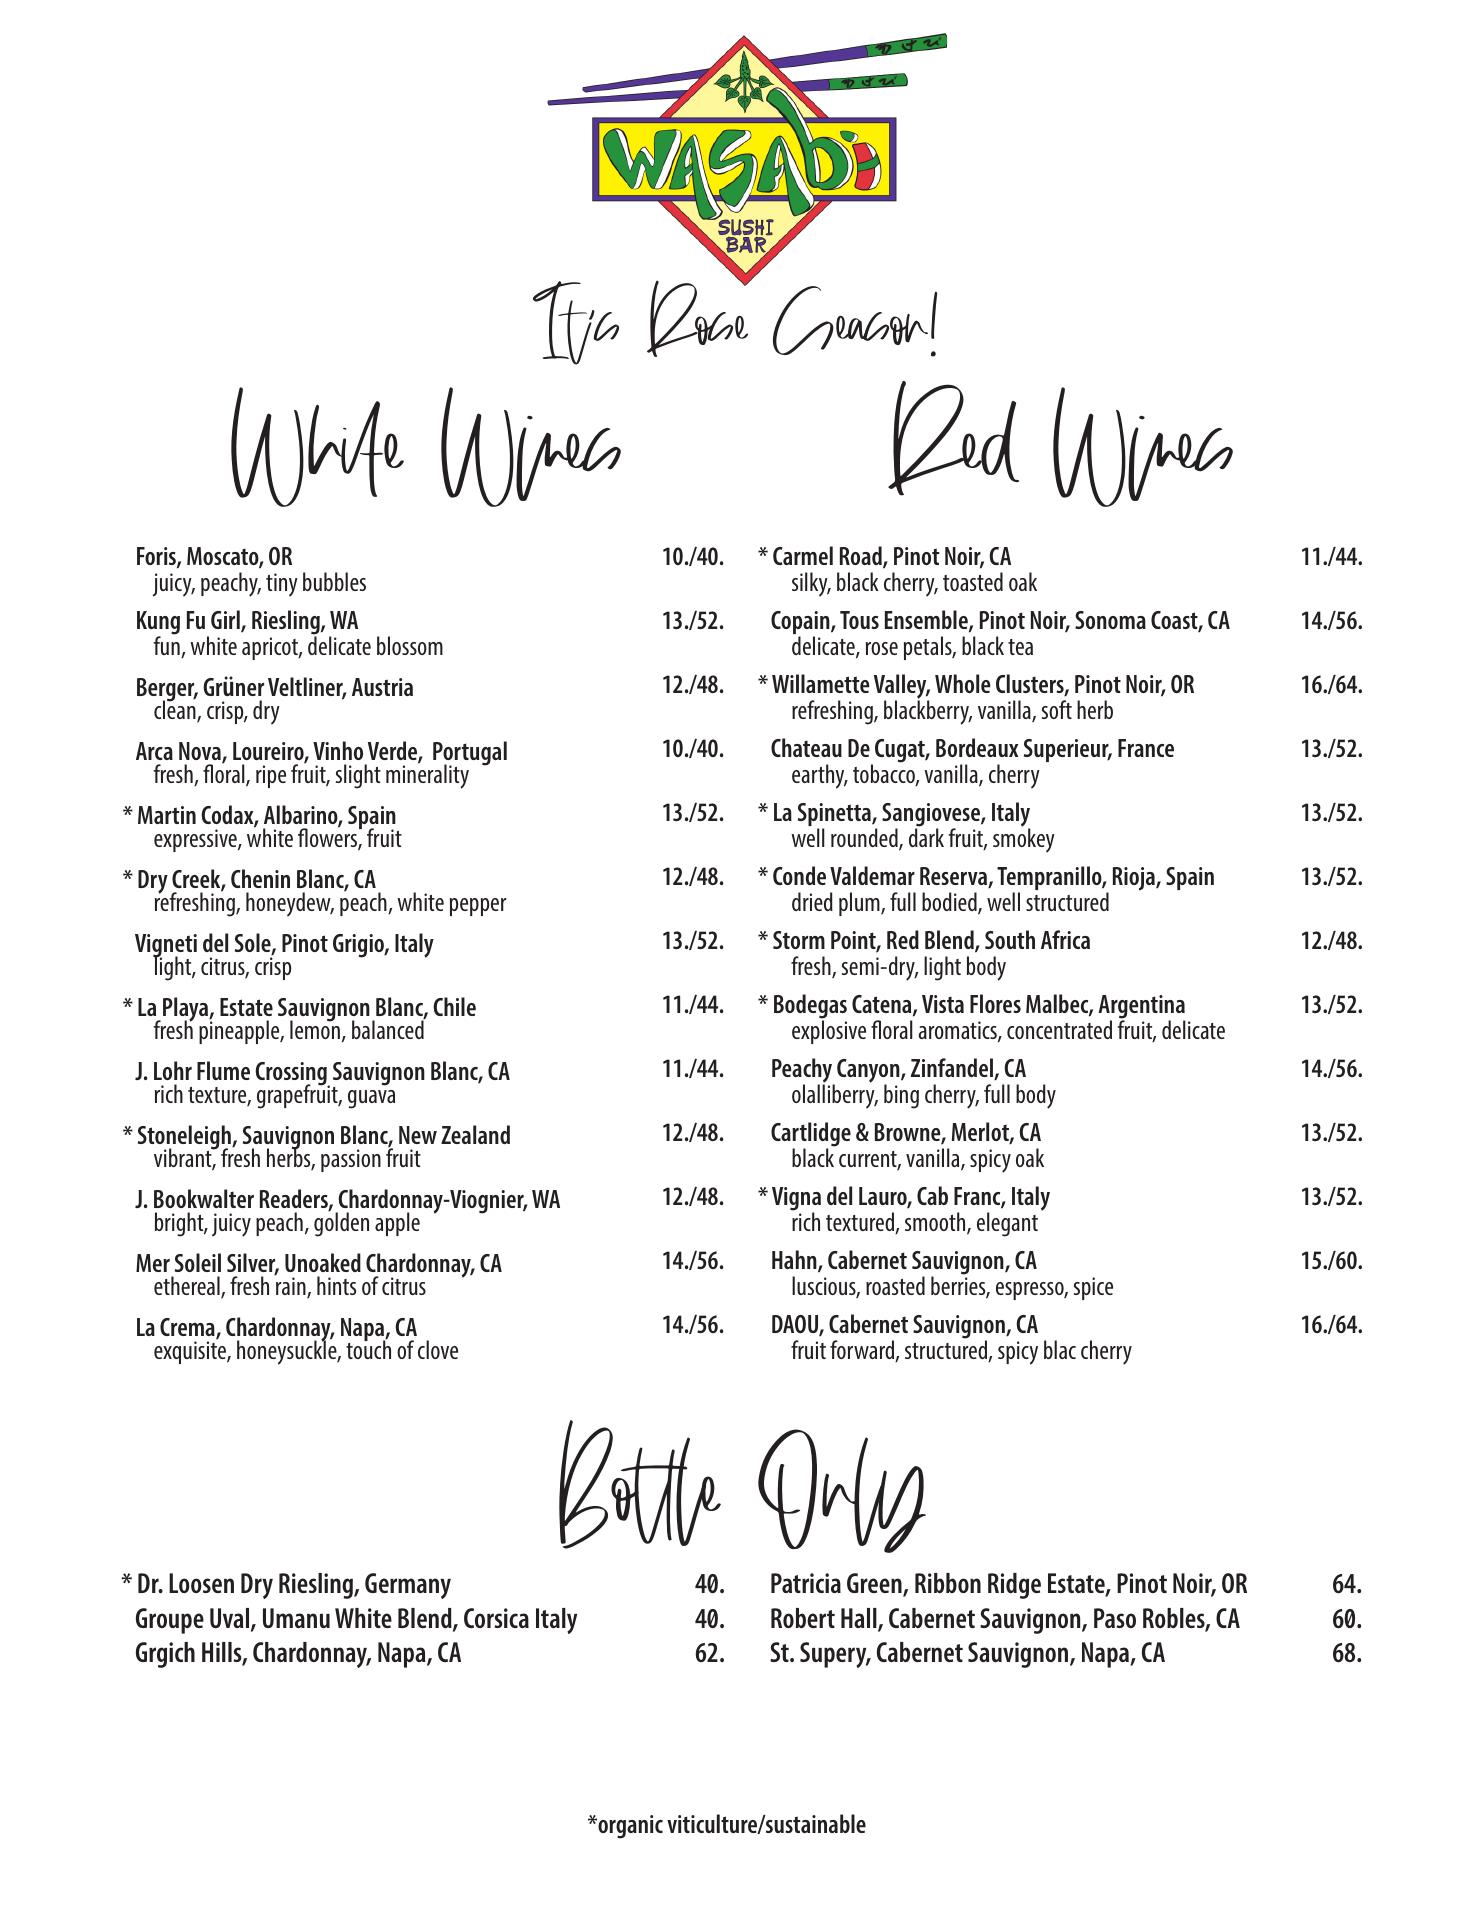 わさび
わさび
WASABi
SUSHI
BAR
It's Rose Season!
White Wines
Foris, Moscato, OR 10./40.
juicy, peachy, tiny bubbles
Kung Fu Girl, Riesling, WA 13./52.
fun, white apricot, delicate blossom
Berger, Grüner Veltliner, Austria 12./48.
clean, crisp, dry
Arca Nova, Loureiro, Vinho Verde, Portugal 10./40.
fresh, floral, ripe fruit, slight minerality
* Martin Codax, Albarino, Spain 13./52.
expressive, white flowers, fruit
* Dry Creek, Chenin Blanc, CA 12./48.
refreshing, honeydew, peach, white pepper
Vigneti del Sole, Pinot Grigio, Italy 13./52.
light, citrus, crisp
* La Playa, Estate Sauvignon Blanc, Chile 11./44.
fresh pineapple, lemon, balanced
J. Lohr Flume Crossing Sauvignon Blanc, CA 11./44.
rich texture, grapefruit, guava
* Stoneleigh, Sauvignon Blanc, New Zealand 12./48.
vibrant, fresh herbs, passion fruit
J. Bookwalter Readers, Chardonnay-Viognier, WA 12./48.
bright, juicy peach, golden apple
Mer Soleil Silver, Unoaked Chardonnay, CA 14./56.
ethereal, fresh rain, hints of citrus
La Crema, Chardonnay, Napa, CA 14./56.
exquisite, honeysuckle, touch of clove
Red Wines
* Carmel Road, Pinot Noir, CA 11./44.
silky, black cherry, toasted oak
Copain, Tous Ensemble, Pinot Noir, Sonoma Coast, CA 14./56.
delicate, rose petals, black tea
* Willamette Valley, Whole Clusters, Pinot Noir, OR 16./64.
refreshing, blackberry, vanilla, soft herb
Chateau De Cugat, Bordeaux Superieur, France 13./52.
earthy, tobacco, vanilla, cherry
* La Spinetta, Sangiovese, Italy 13./52.
well rounded, dark fruit, smokey
* Conde Valdemar Reserva, Tempranillo, Rioja, Spain 13./52.
dried plum, full bodied, well structured
* Storm Point, Red Blend, South Africa 12./48.
fresh, semi-dry, light body
* Bodegas Catena, Vista Flores Malbec, Argentina 13./52.
explosive floral aromatics, concentrated fruit, delicate
Peachy Canyon, Zinfandel, CA 14./56.
olalliberry, bing cherry, full body
Cartlidge & Browne, Merlot, CA 13./52.
black current, vanilla, spicy oak
* Vigna del Lauro, Cab Franc, Italy 13./52.
rich textured, smooth, elegant
Hahn, Cabernet Sauvignon, CA 15./60.
luscious, roasted berries, espresso, spice
DAOU, Cabernet Sauvignon, CA 16./64.
fruit forward, structured, spicy blac cherry
Bottle Only
* Dr. Loosen Dry Riesling, Germany 40.
Groupe Uval, Umanu White Blend, Corsica Italy 40.
Grgich Hills, Chardonnay, Napa, CA 62.
Patricia Green, Ribbon Ridge Estate, Pinot Noir, OR 64.
Robert Hall, Cabernet Sauvignon, Paso Robles, CA 60.
St. Supery, Cabernet Sauvignon, Napa, CA 68.
*organic viticulture/sustainable